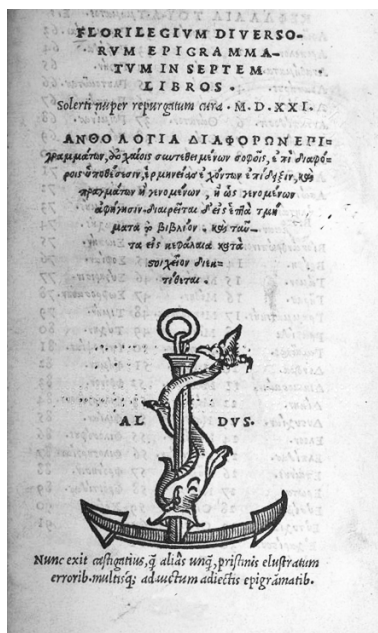 FLORILEGIVM DIVERSO-
RVM EPIGRAMMA-
TVM IN SEPTEM
LIBROS.
Solerti nuper repurgatum cura. M. D. XXI.
ΑΝΘΟΛΟΓΙΑ ΔΙΑΦΟΡΩΝ ΕΠΙ-
γραμμάτων, ἀρχαίοις συντεθειμένων σοφοῖς, ἐπὶ διαφό-
ροις ὑποθέσεσιν, ἑρμηνείας ἐχόντων ἐπίδειξιν, καὶ
πραγμάτων ἢ γενομένων, ἢ ὡς γενομένων
ἀφήγησιν. διαιρεῖται δ' εἰς ἑπτὰ τμή
ματα τὸ βιβλίον. καὶ ταῦ-
τα εἰς κεφάλαια κατὰ
στοιχεῖον διεκ-
τίθεται.
AL DVS.
Nunc exit castigatius, q̃ aliàs unq̃, pristinis elustratum
errorib. multisq; ad uictum adiectis epigrãmatib.